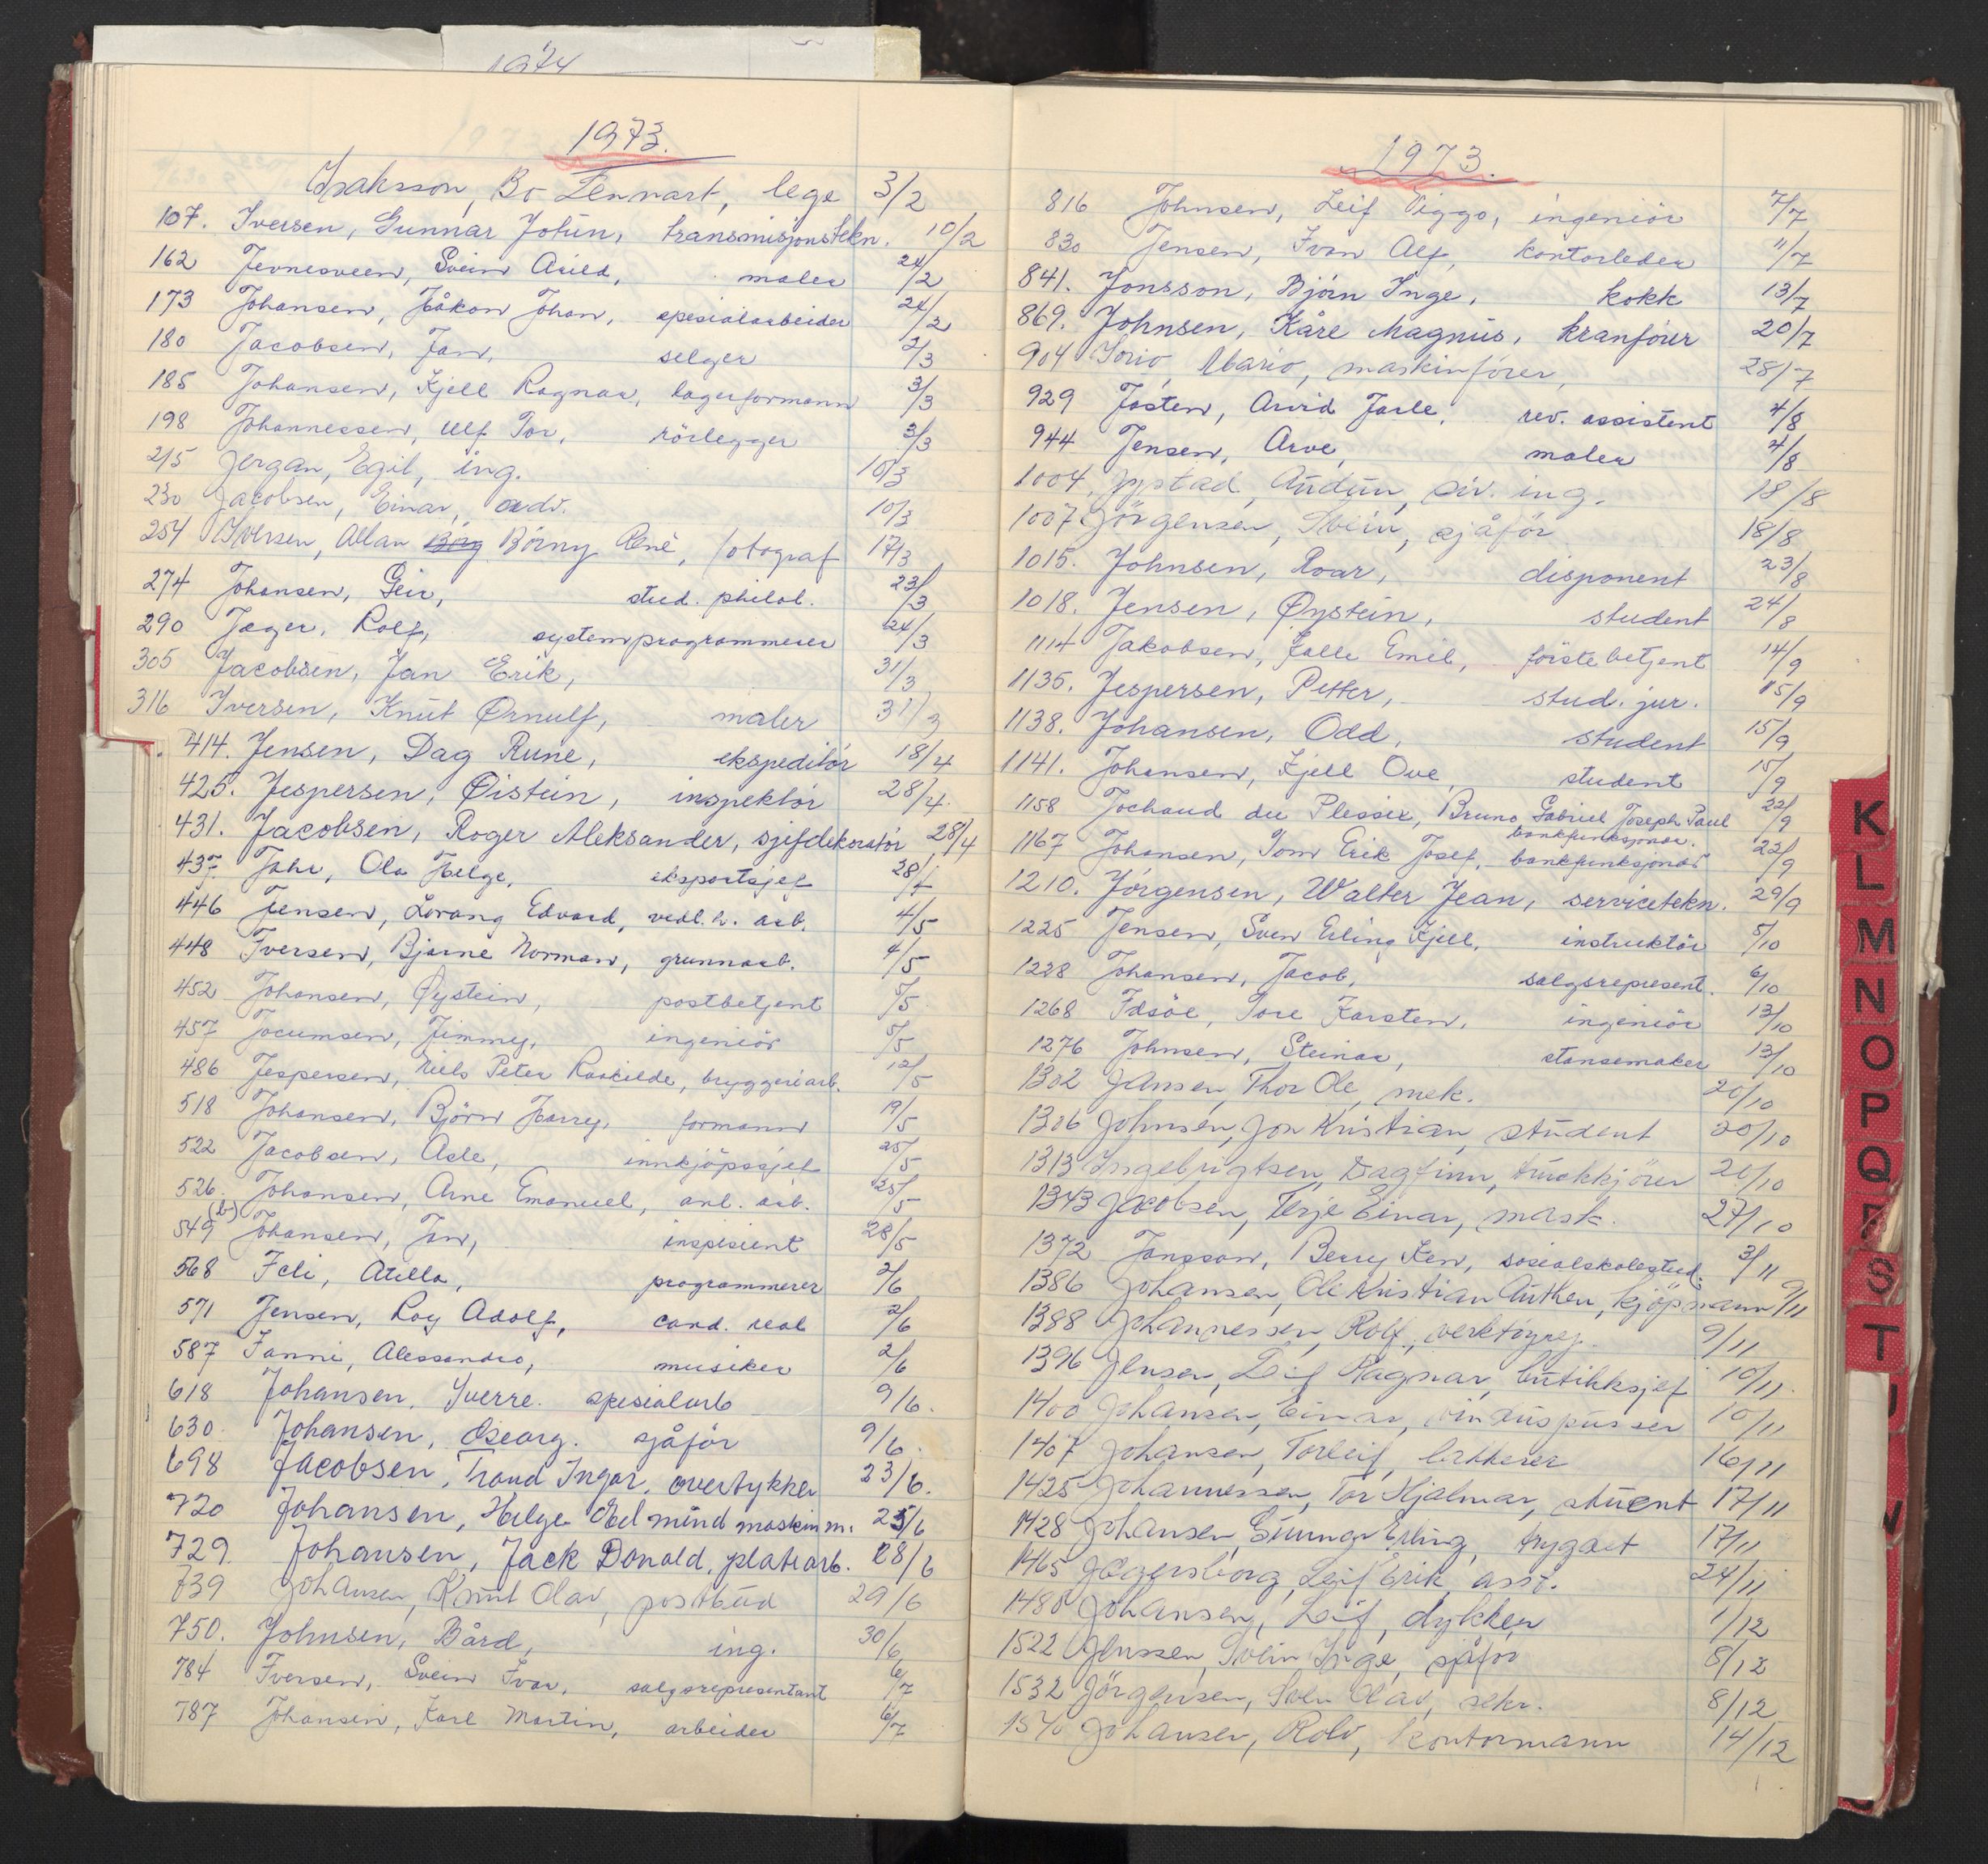 1974
1973.
Isaksson, Bo Lennart, lege 3/2
107. Iversen, Gunnar Jotun, transmisjonstekn. 10/2
162 Jevnesveen, Svein Arild, maler 24/2
173 Johansen, Håkon Johan, spesialarbeider 24/2
180 Jacobsen, Jan, selger 2/3
185 Johansen, Kjell Ragnar, lagerformann 3/3
198 Johannessen, Ulf Tor, rörlegger 3/3
215 Jergan, Egil, ing. 10/3
230 Jacobsen, Einar, adv. 10/3
254 Iversen, Allan Börny René, fotograf 17/3
274 Johansen, Geir, stud. philol. 23/3
290 Jager, Rolf, systemprogrammerer 24/3
305 Jacobsen, Jan Erik, 31/3
316 Iversen, Knut Ørnulf, maler 31/3
414. Jensen, Dag Rune, ekspeditör 18/4
425. Jespersen, Øistein, inspektör 28/4.
431. Jacobsen, Roger Aleksander, sjefdekoratör 28/4
437 Jahr, Ola Helge, eksportsjef 28/4
446 Jensen, Lorang Edvard, vedl.h. arb. 4/5
448 Iversen, Bjarne Norman, grunnarb. 4/5
452 Johansen, Øystein, postbetjent 5/5
457 Jocumsen, Jimmy, ingeniör 5/5
486 Jespersen, Niels Peter Roskilde, bryggeriarb. 12/5
518 Johansen, Björn Harry, formann 19/5
522 Jacobsen, Asle, innkjöpssjef 25/5
526. Johansen, Arne Emanuel, anl. arb. 25/5
549 (b) Johansen, Jan, inspisient 28/5
568 Icli, Atilla, programmerer 2/6
571 Jensen, Roy Adolf, cand. real 2/6
587 Ianni, Alessandro, musiker 2/6
618 Johansen, Sverre. spesialarb 9/6.
630. Johansen, Georg. sjåför 9/6.
698 Jacobsen, Trond Ingar. overtykker 23/6.
720 Johansen, Helge Edmund maskinm. 25/6
729. Johansen, Jack Donald, platearb. 28/6
739 Johansen, Knut Olav, postbud 29/6
750. Johnsen, Bård, ing. 30/6
784 Iversen, Svein Ivar, salgsrepresentant 6/7
787 Johansen, Karl Martin, arbeider 6/7
1973.
816 Johnsen, Leif Viggo, ingeniör 7/7
830 Jensen, Ivan Alf, kontorleder 11/7
841. Jonsson, Björn Inge, kokk 13/7
869. Johnsen, Kåre Magnus, kranförer 20/7
904 Iorio, Mario, maskinförer, 28/7
929 Jasten, Arvid Jarle, rev. assistent 4/8
944 Jensen, Arve, maler 4/8
1004, Jystad, Audun, siv. ing. 18/8
1007 Jörgensen, Svein, sjåför 18/8
1015. Johnsen, Roar, disponent 23/8
1018. Jensen, Øystein, student 24/8
1114 Jakobsen, Kalle Emil, förstebetjent 14/9
1135. Jespersen, Petter, stud. jur. 15/9
1138. Johansen, Odd, student 15/9
1141. Johansen, Kjell Ove, student 15/9
1158 Jochaud du Plessix, Bruno Gabriel Joseph Paul 22/9
bankfunksjonær.
1167 Johansen, Tom Erik Josef, bankfunksjonær 22/9
1210. Jörgensen, Walter Jean, servicetekn. 29/9
1225 Jensen, Sven Erling Kjell, instruktör 5/10
1228 Johansen, Jacob, salgsrepresent. 6/10
1268 Idsöe, Tore Karsten, ingeniör 13/10
1276 Johnsen, Steinar, stansemaker 13/10
1302 Jansen, Thor Ole, mek. 20/10
1306 Johnsen, Jon Kristian, student 20/10
1313 Ingebrigtsen, Dagfinn, truckkjörer 20/10
1343 Jacobsen, Terje Einar, mask. 27/10
1372 Jonsson, Berry Ken, sosialskolestud. 3/11
1386 Johansen, Ole Kristian Authen, kjöpmann 9/11
1388 Johannessen, Rolf, verktöymj. 9/11
1396 Jensen, Leif Ragnar, butikksjef 10/11.
1400 Johansen, Einar, vinduspusser 10/11
1407 Johansen, Torleif, lakkerer 16/11
1425 Johannessen, Tor Hjalmar, stuent 17/11
1428 Johansen, Gunnar Erling, trygdet 17/11
1465 Jægersborg, Leif Erik, asst. 24/11
1480 Johansen, Leif, dykker 1/12
1522 Jenssen, Svein Inge, sjåför 8/12
1532 Jörgensen, Sven Olav, sekr. 8/12
1540 Johansen, Rolv, kontormann 14/12
K
L
M
N
O
P
Q
R
S
T